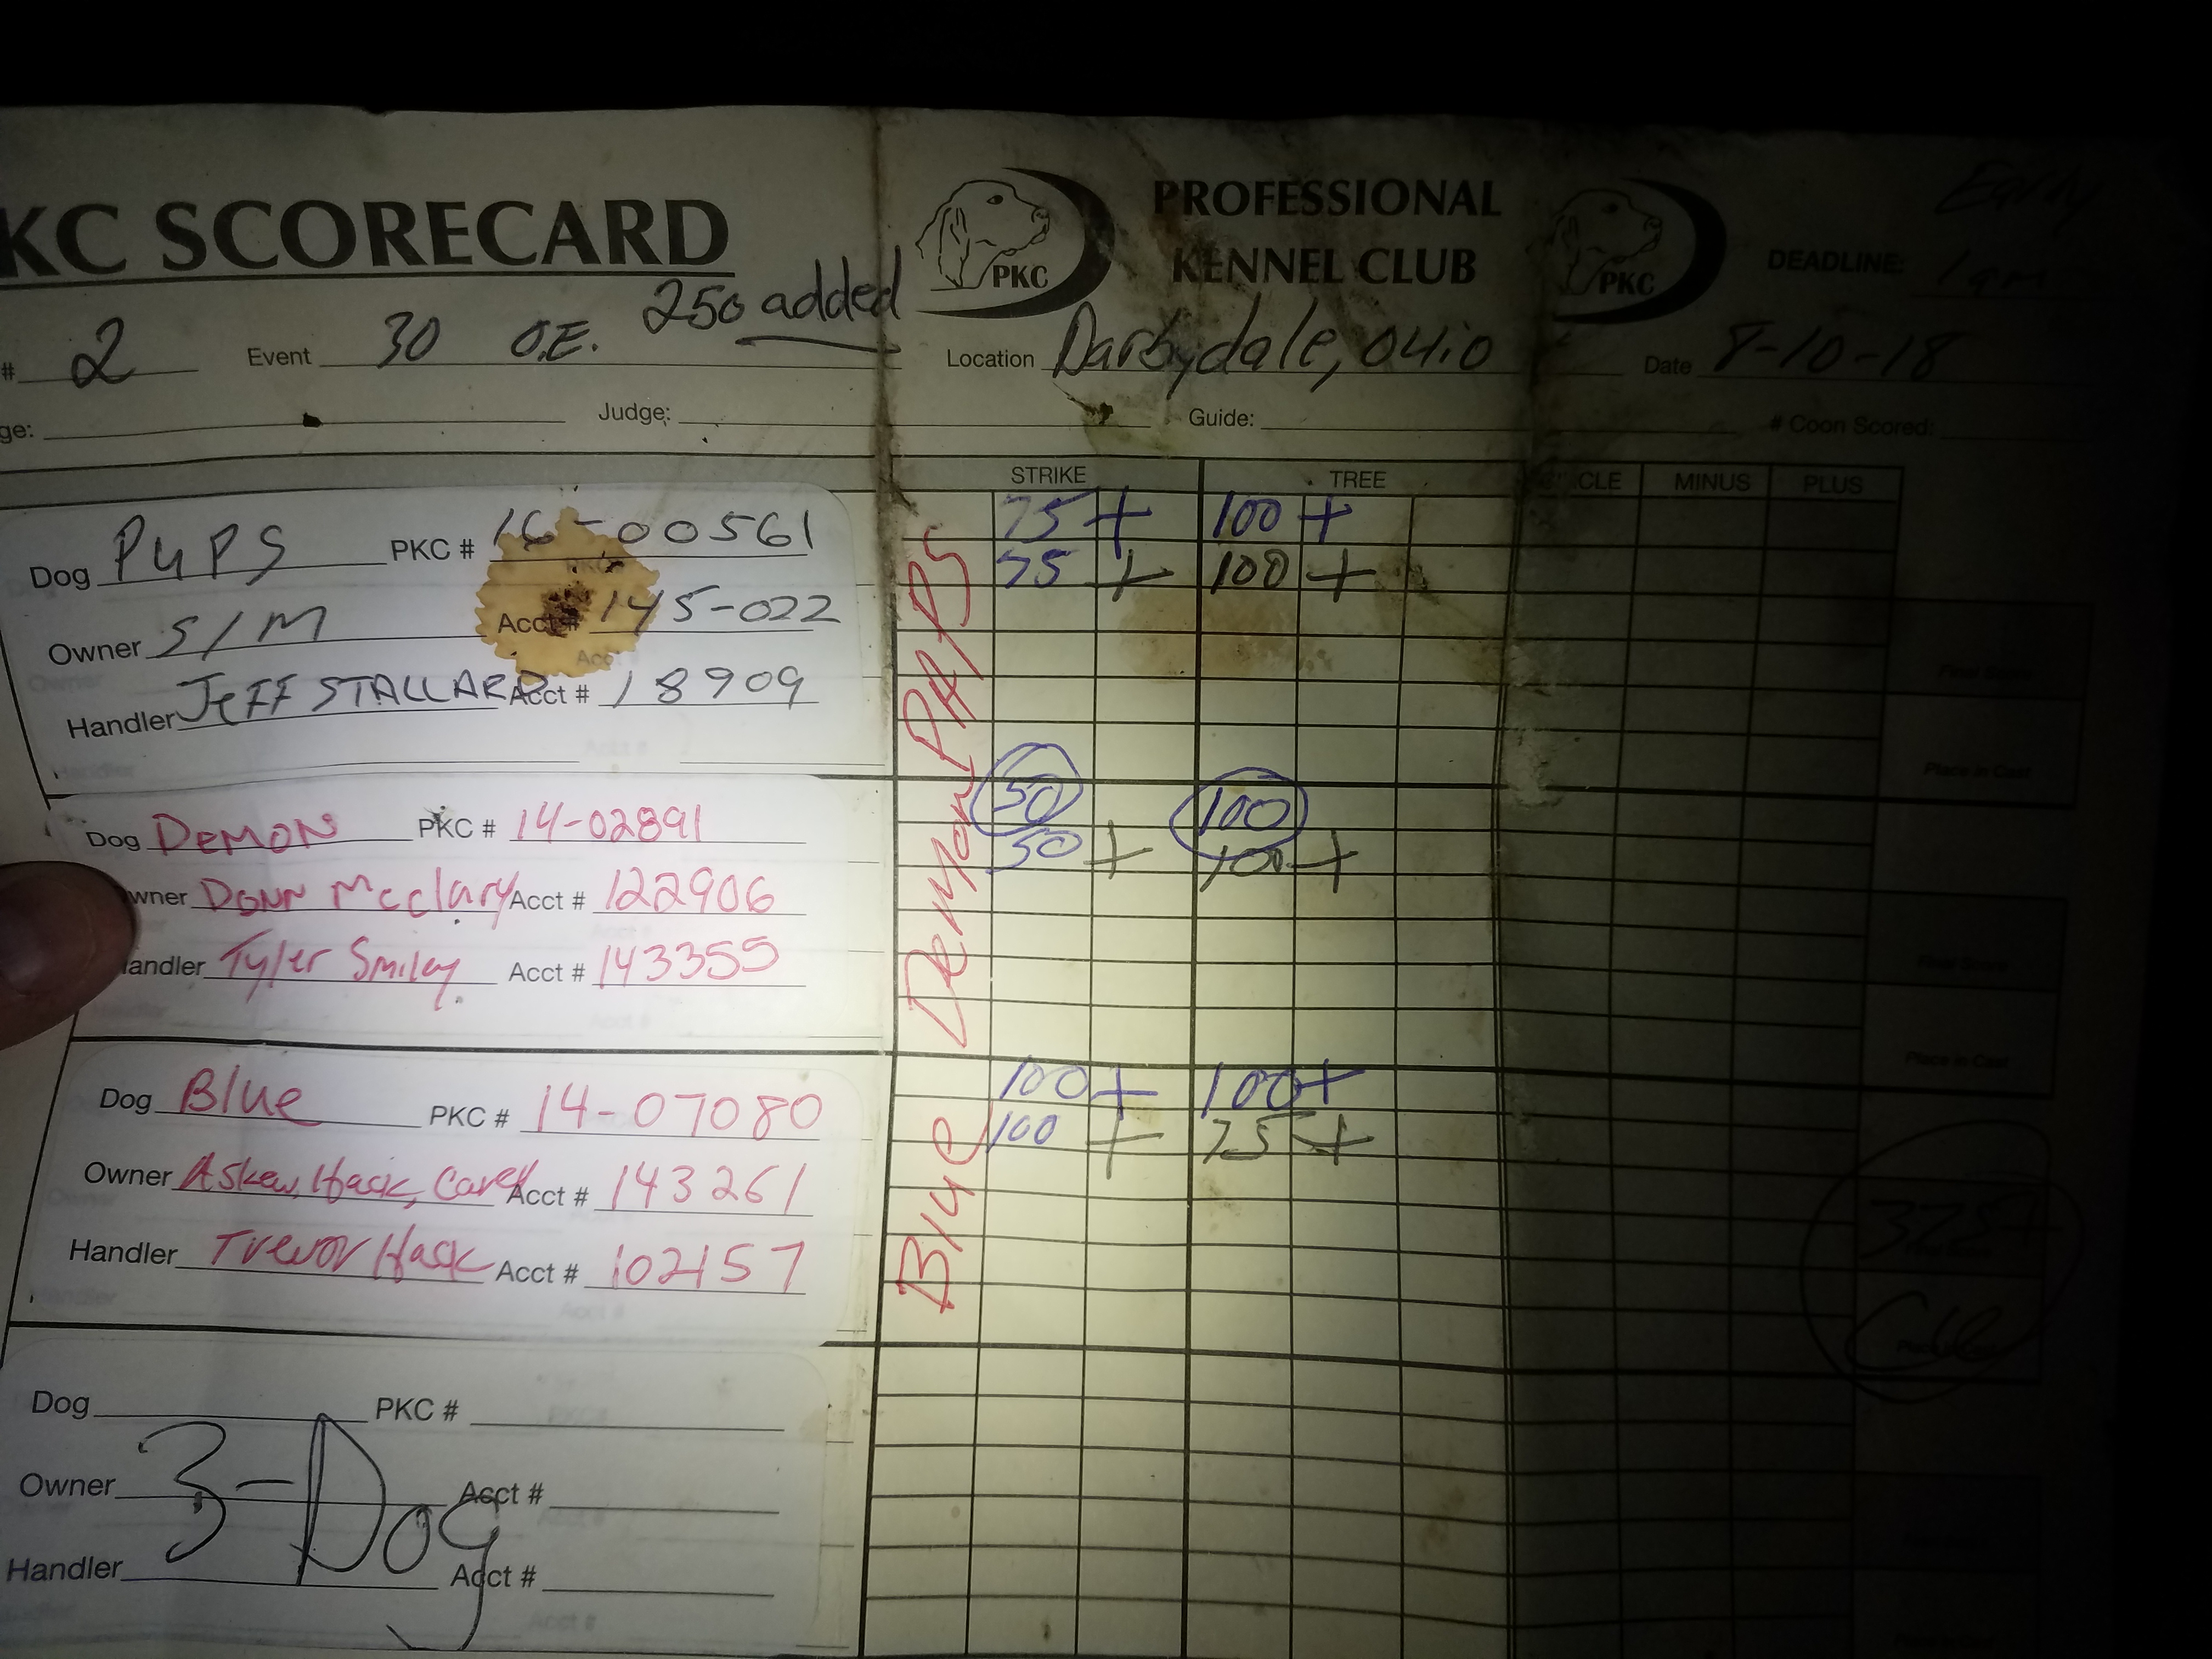 KC SCORECARD
PKC
PROFESSIONAL
KENNEL CLUB
PKC
Early
DEADLINE: 1am
# 2 Event 30 O.E. 250 added Location Darbydale, OHiO Date 8-10-18
ge: Judge: Guide: # Coon Scored:
STRIKE TREE CLE MINUS PLUS
Dog PUPS PKC # 16-00561
Owner S/M Acct # 145-022
Handler JEFF STALLARD Acct # 18909
PUPS
75 + 100 +
75 + 100 +
Final Score
Place in Cast
Dog DEMON PKC # 14-02891
wner DONN Mcclary Acct # 122906
andler Tyler Smiley Acct # 143355
Demon
50 100
50 + 100 +
Final Score
Place in Cast
Dog Blue PKC # 14-07080
Owner Askew, Hack, Carey Acct # 143261
Handler Trevor Hack Acct # 102157
Blue
100 + 100 +
100 + 75 +
Dog PKC #
Owner Acct #
Handler Acct #
3-Dog